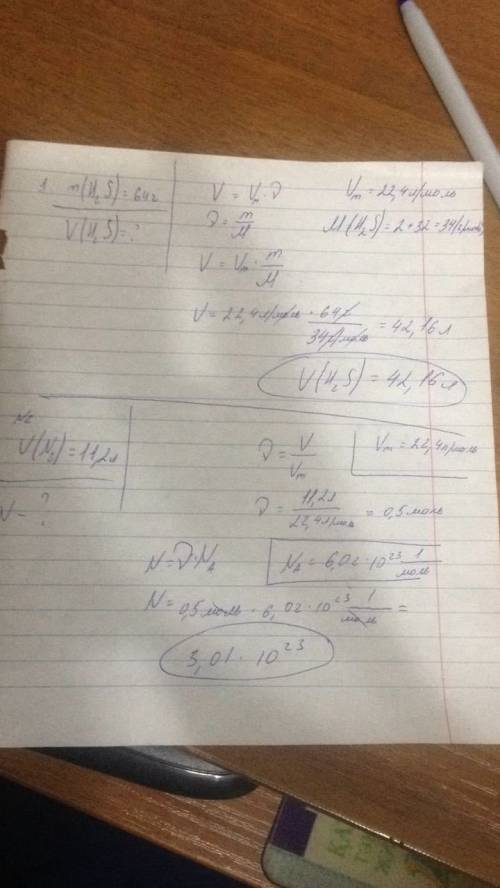 1. m(H₂S) = 64г
V(H₂S) = ?
V = Vₘ · ν
ν = m/M
V = Vₘ · m/M
Vₘ = 22,4 л/моль
M(H₂S) = 2 + 32 = 34(г/моль)
V = 22,4 л/моль · 64г / 34г/моль = 42,16 л
V(H₂S) = 42,16 л
№2
V(N₂) = 11,2л
N – ?
ν = V/Vₘ
Vₘ = 22,4 л/моль
ν = 11,2л / 22,4 л/моль = 0,5 моль
N = ν · N_A
N_A = 6,02 · 10²³ 1/моль
N = 0,5 моль · 6,02 · 10²³ 1/моль =
3,01 · 10²³